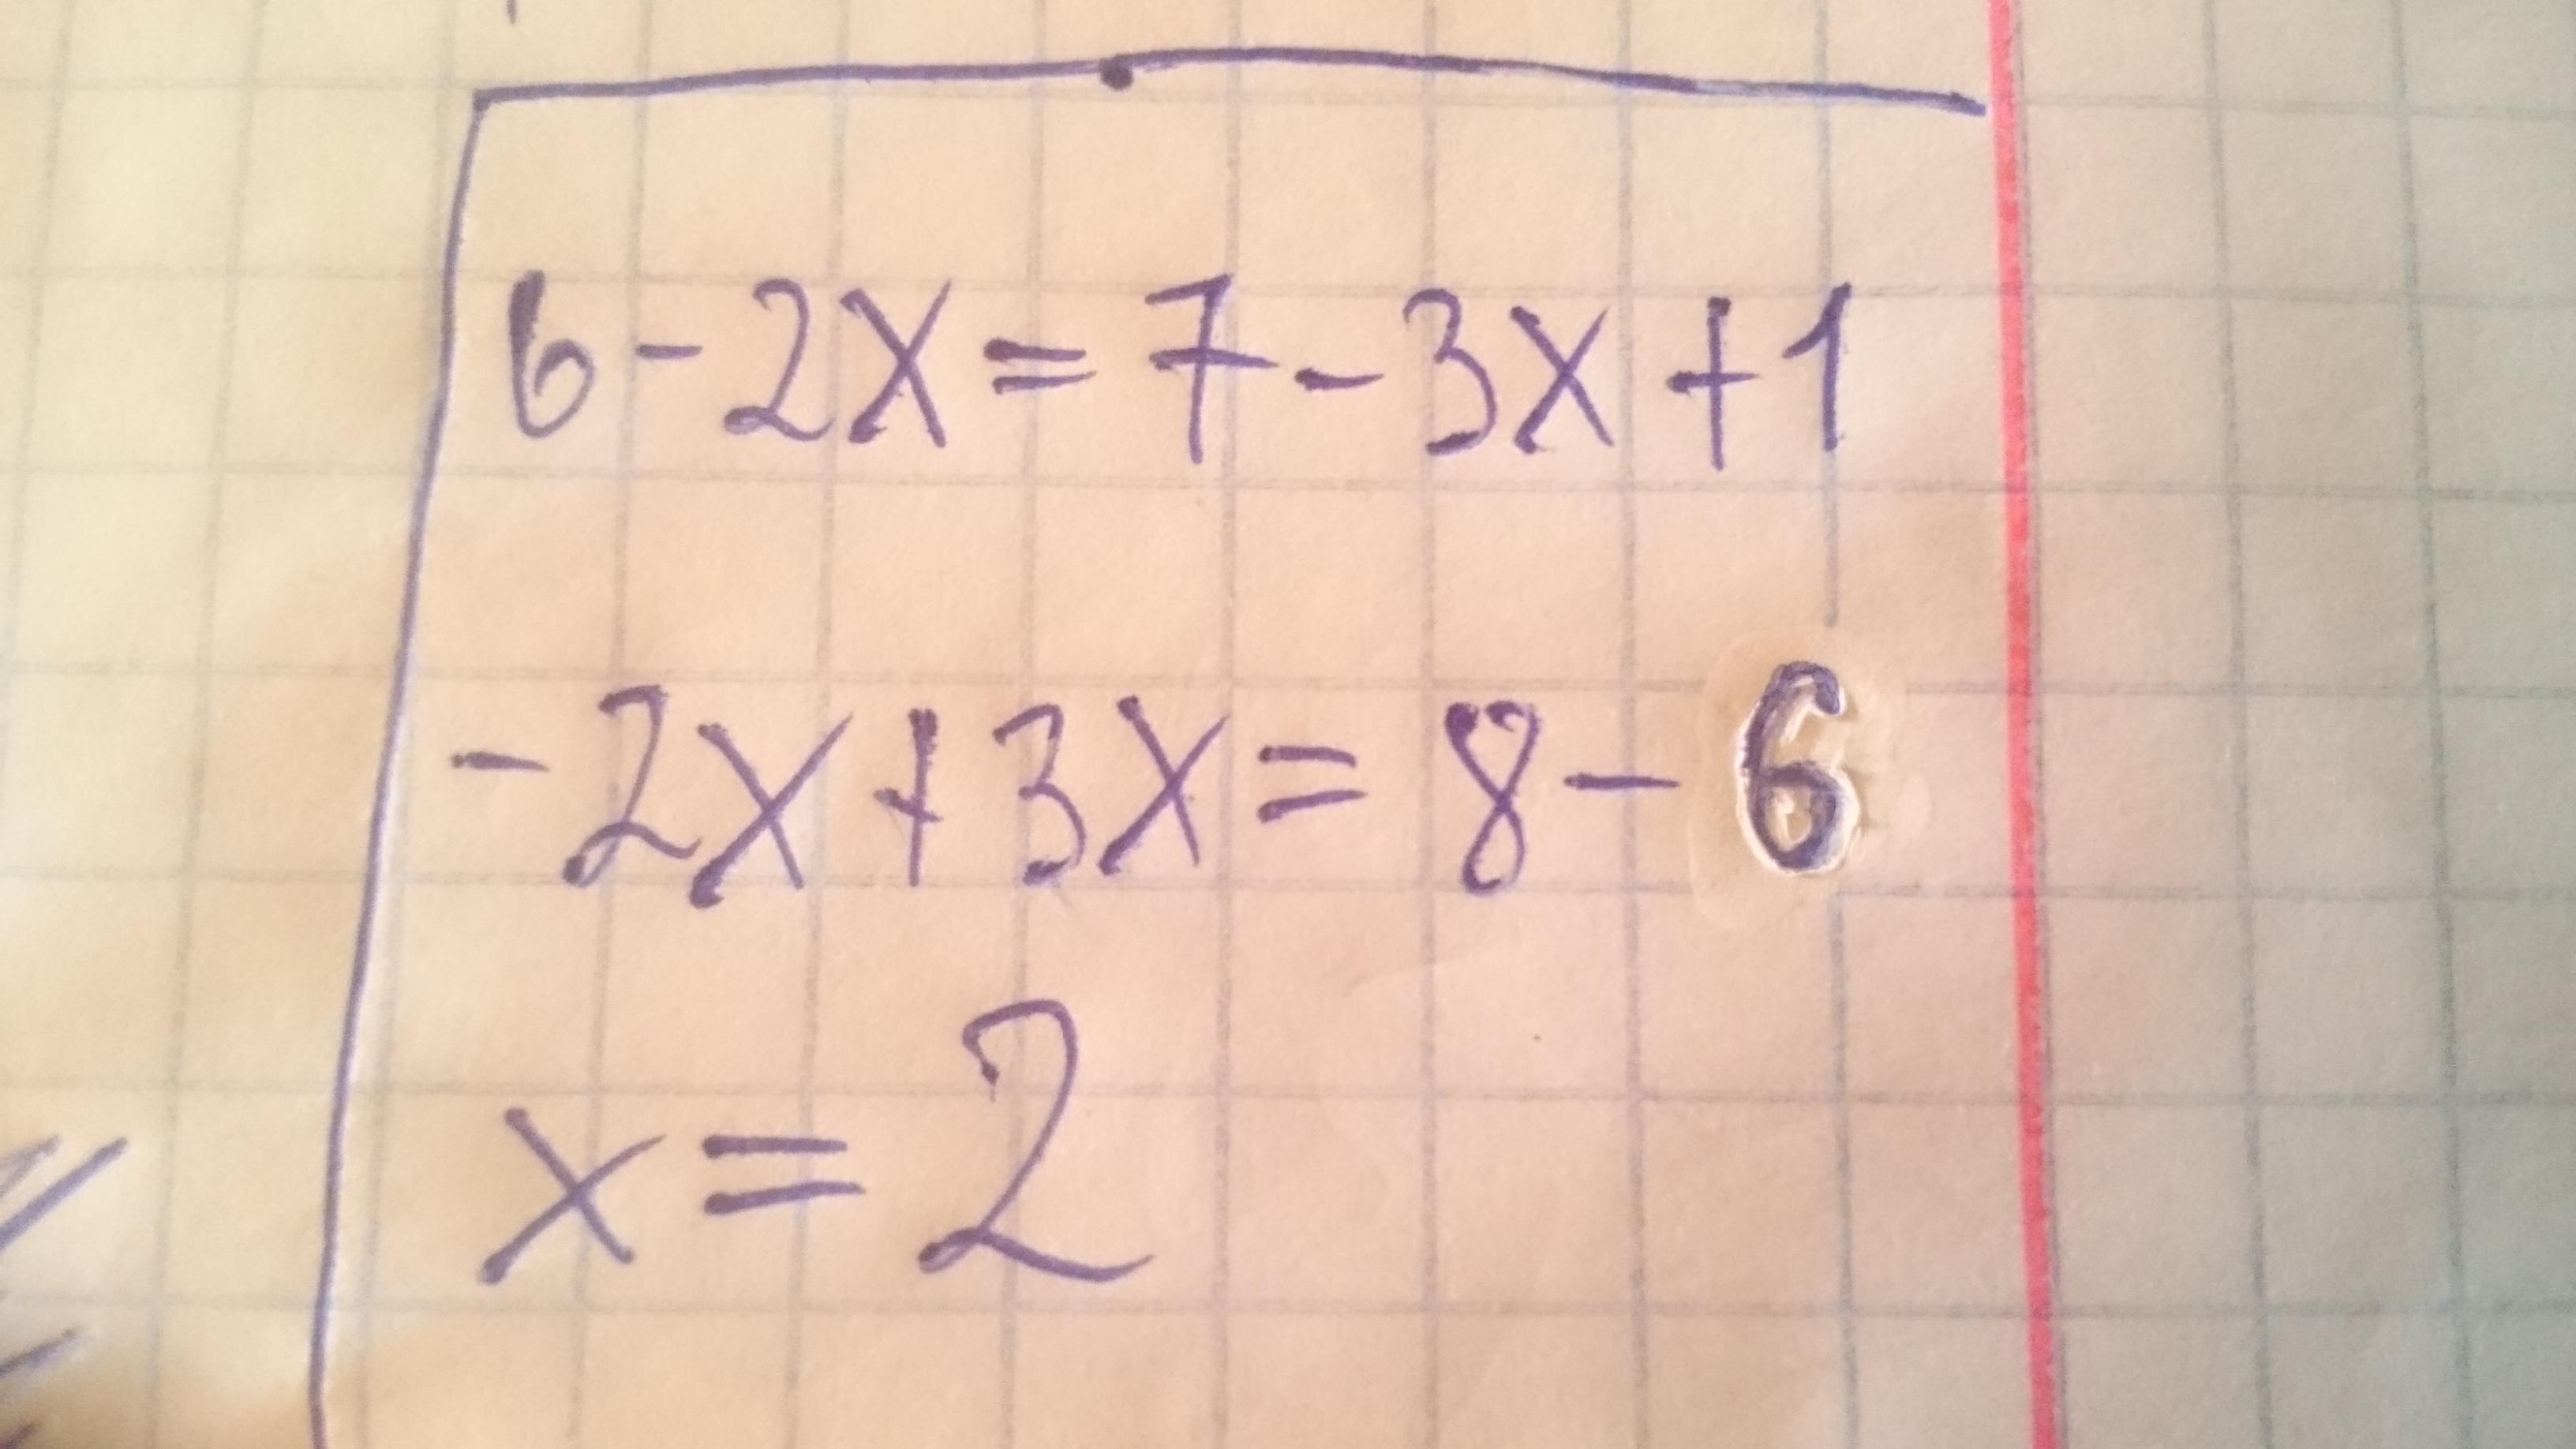 6-2x=7-3x+1
-2x+3x=8-6
x=2